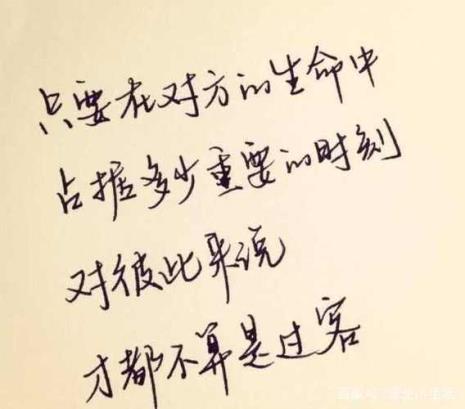 只要在对方的生命中
占据多少重要的时刻
对彼此来说
才都不算是过客